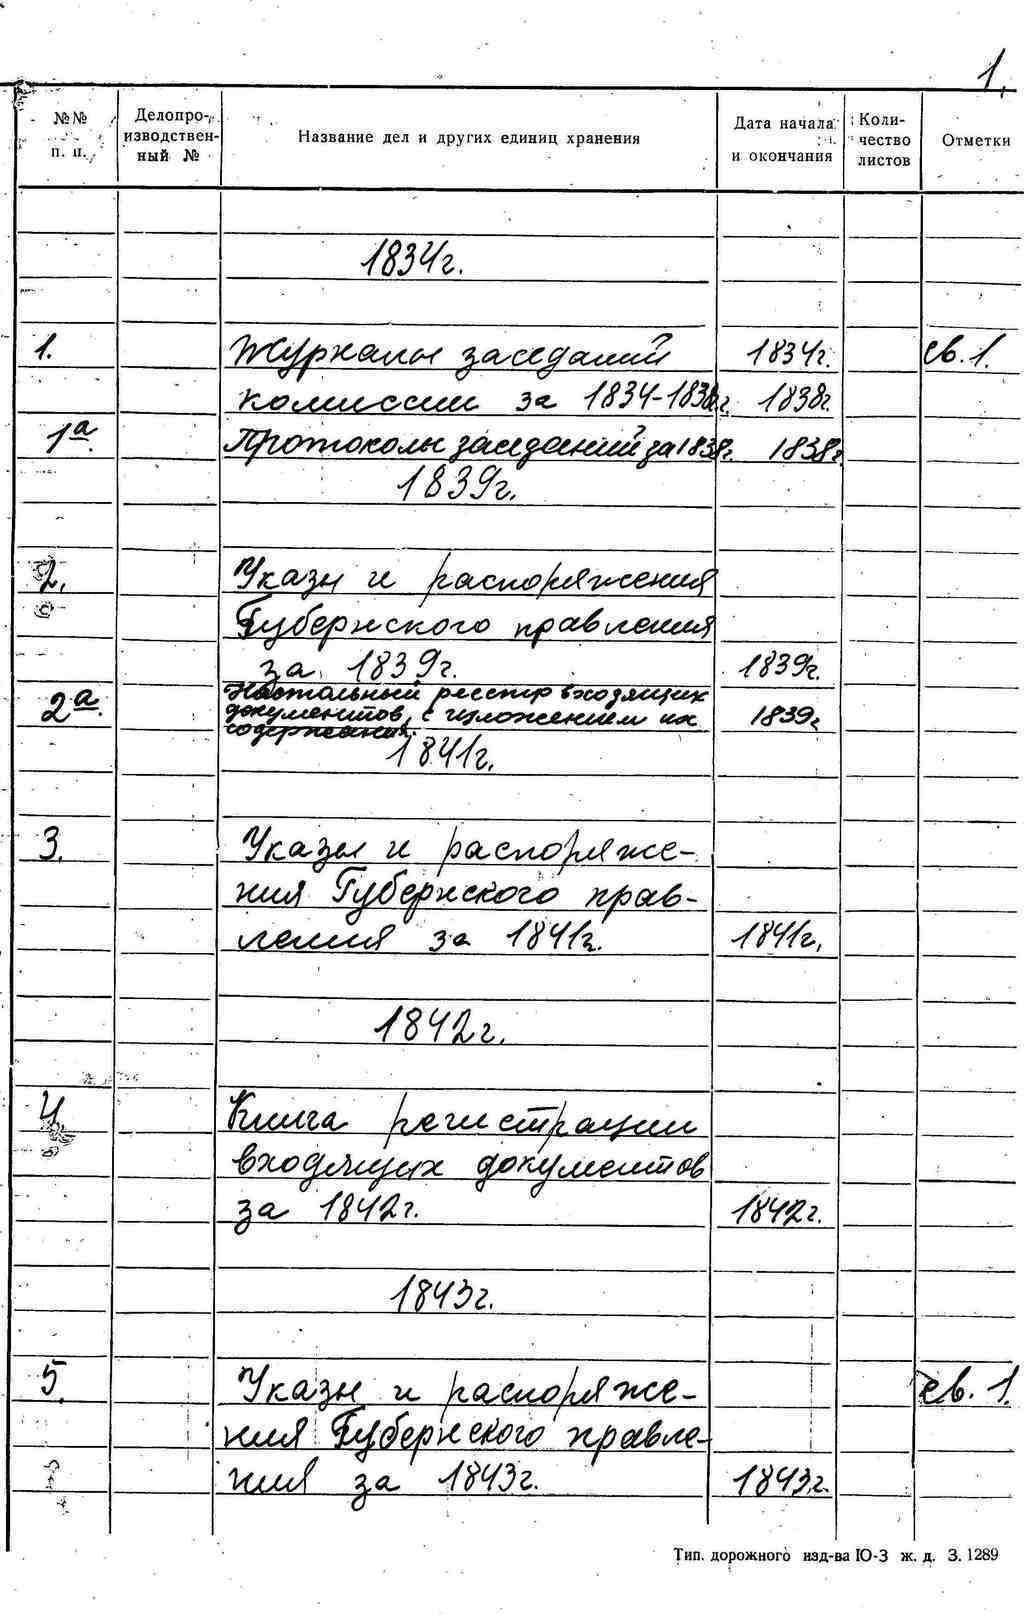 1.
№№ п. п.
Делопроизводственный №
Название дел и других единиц хранения
Дата начала и окончания
Количество листов
Отметки
1834г.
1. Журналы заседаний 1834г. св. 1.
комиссии за 1834-1838г. 1838г.
1а. Протоколы заседаний за 1838г. 1838г.
1839г.
2. Указы и распоряжения
Губернского правления
за 1839г. 1839г.
2а. Настольный реестр входящих
документов, с изложением их 1839г
содержания.
1841г.
3. Указы и распоряже-
ния Губернского прав-
ления за 1841г. 1841г.
1842г.
4. Книга регистрации
входящих документов
за 1842г. 1842г.
1843г.
5. Указы и распоряже- св. 1.
ния Губернского правле-
ния за 1843г. 1843г.
Тип. дорожного изд-ва Ю-З ж. д. З. 1289